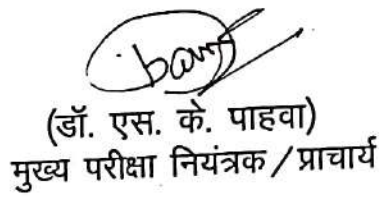 (डॉ. एस. के. पाहवा)
मुख्य परीक्षा नियंत्रक / प्राचार्य